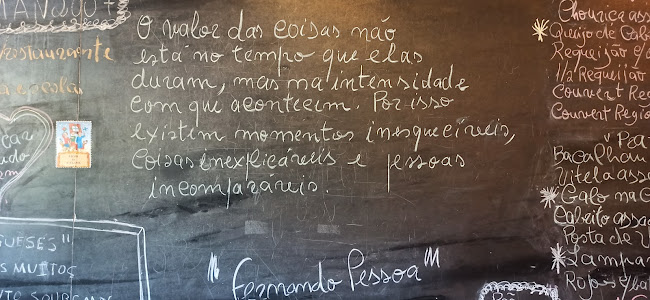 O valor das coisas não
está no tempo que elas
duram, mas na intensidade
com que acontecem. Por isso
existem momentos inesqueíveis,
coisas inexplicáveis e pessoas
incomparáveis.
"Fernando Pessoa"
restaurante
GUESES"
S MUITOS
Chouriça ass
Queijo de Cab
Requeijão c/
1/2 Requeijão
Couvert Reg
Couvert Regio
Bacalhau
Vitela asse
Galo na C
Cabrito assa
Posta de V
Lampr
Rojões